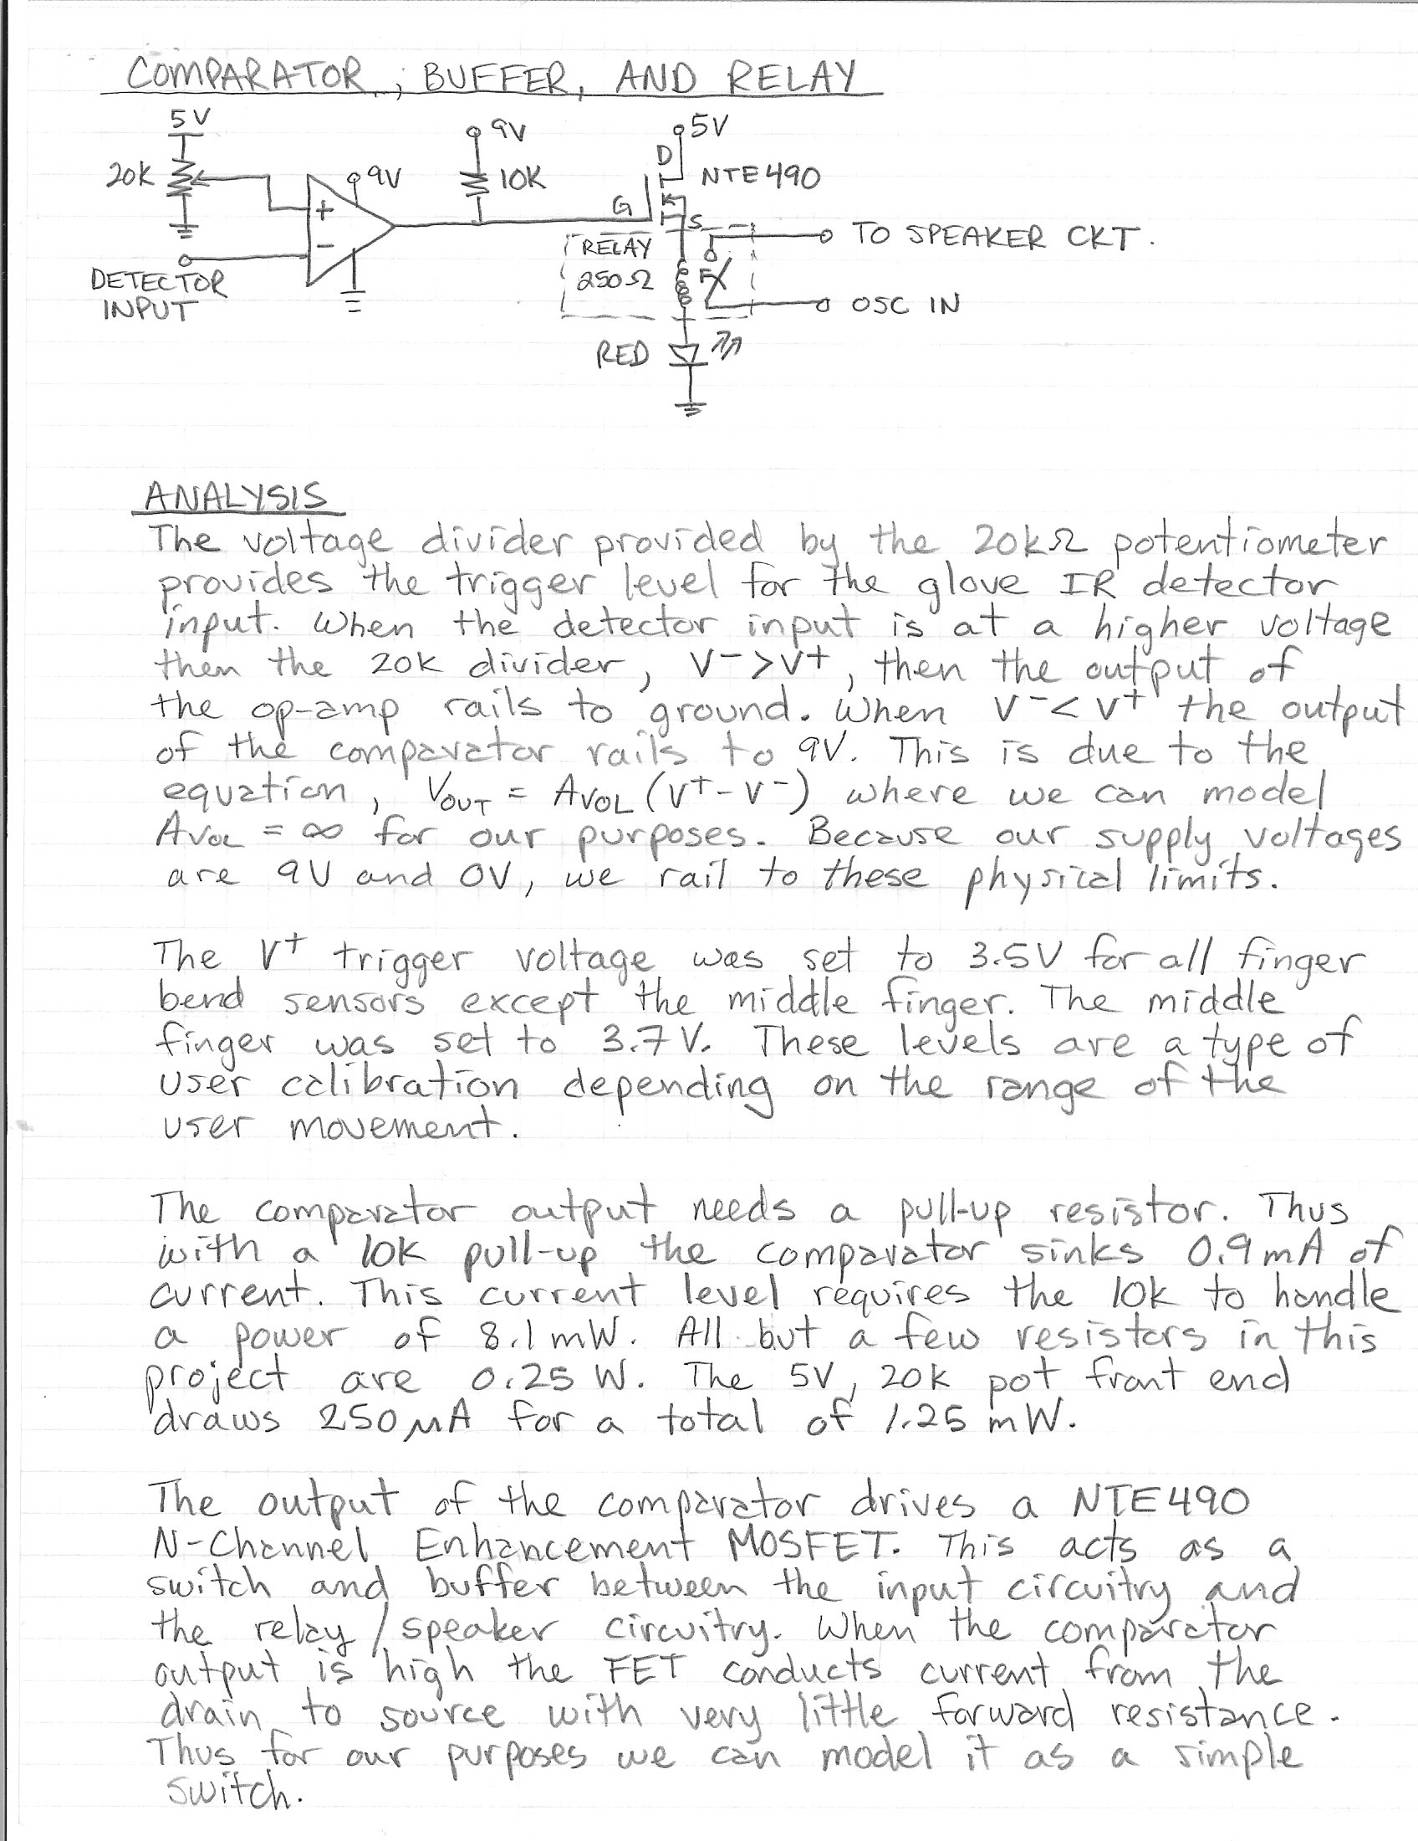 COMPARATOR, BUFFER, AND RELAY
5V
9V
5V
D
20K
9V
10K
NTE490
G
+
S
TO SPEAKER CKT.
RELAY
-
250Ω
DETECTOR
INPUT
OSC IN
RED
ANALYSIS
The voltage divider provided by the 20kΩ potentiometer
provides the trigger level for the glove IR detector
input. When the detector input is at a higher voltage
then the 20K divider, V->V+, then the output of
the op-amp rails to ground. When V-<V+ the output
of the comparator rails to 9V. This is due to the
equation, VOUT = AVOL(V+-V-) where we can model
AVOL = ∞ for our purposes. Because our supply voltages
are 9V and 0V, we rail to these physical limits.
The V+ trigger voltage was set to 3.5V for all finger
bend sensors except the middle finger. The middle
finger was set to 3.7V. These levels are a type of
user calibration depending on the range of the
user movement.
The comparator output needs a pull-up resistor. Thus
with a 10K pull-up the comparator sinks 0.9mA of
current. This current level requires the 10k to handle
a power of 8.1mW. All but a few resistors in this
project are 0.25 W. The 5V, 20K pot front end
draws 250μA for a total of 1.25 mW.
The output of the comparator drives a NTE490
N-Channel Enhancement MOSFET. This acts as a
switch and buffer between the input circuitry and
the relay/speaker circuitry. When the comparator
output is high the FET conducts current from the
drain to source with very little forward resistance.
Thus for our purposes we can model it as a simple
switch.